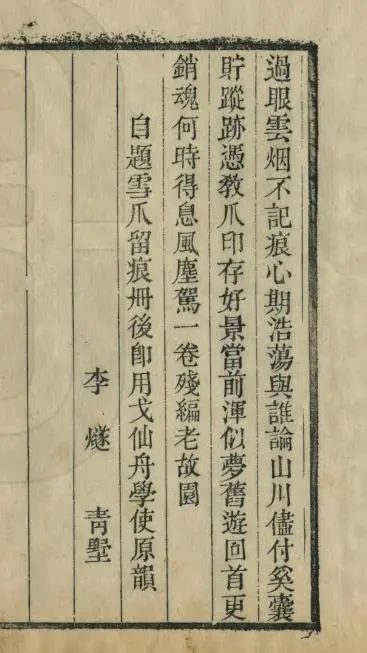 過眼雲烟不記痕心期浩蕩與誰論山川儘付奚囊
貯蹤跡憑教爪印存好景當前渾似夢舊遊回首更
銷魂何時得息風塵駕一卷殘編老故園
自題雪爪留痕冊後卽用戈仙舟學使原韻
李燧 青墅